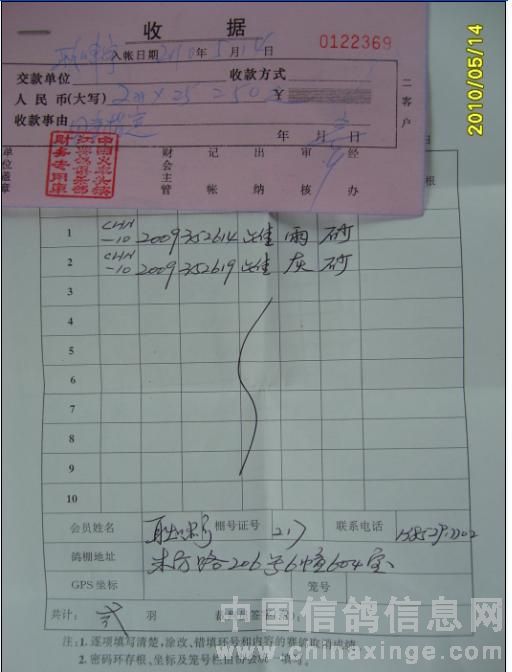 一 收 据
入帐日期 2010 年 5 月 14
0122369
交款单位 收款方式
人民币(大写) ¥
收款事由 年 月 日
二客户
财会主管 记帐 出纳 审核 经办
财务专用章
2010/05/14
1 CHN-10 2009 352614 雌 雨 砂
2 CHN-10 2009 352619 雌 灰 砂
3
4
5
6
7
8
9
10
会员姓名 棚号证号 217 联系电话
鸽棚地址 206号6幢604室
GPS坐标 笼号
共计: 贰 羽
注:1.逐项填写清楚,涂改、错填环号和内容的赛鸽取消成绩
2.密码环存根、坐标及笼号栏由协会统一填写。
中国信鸽信息网
www.chinaxinge.com